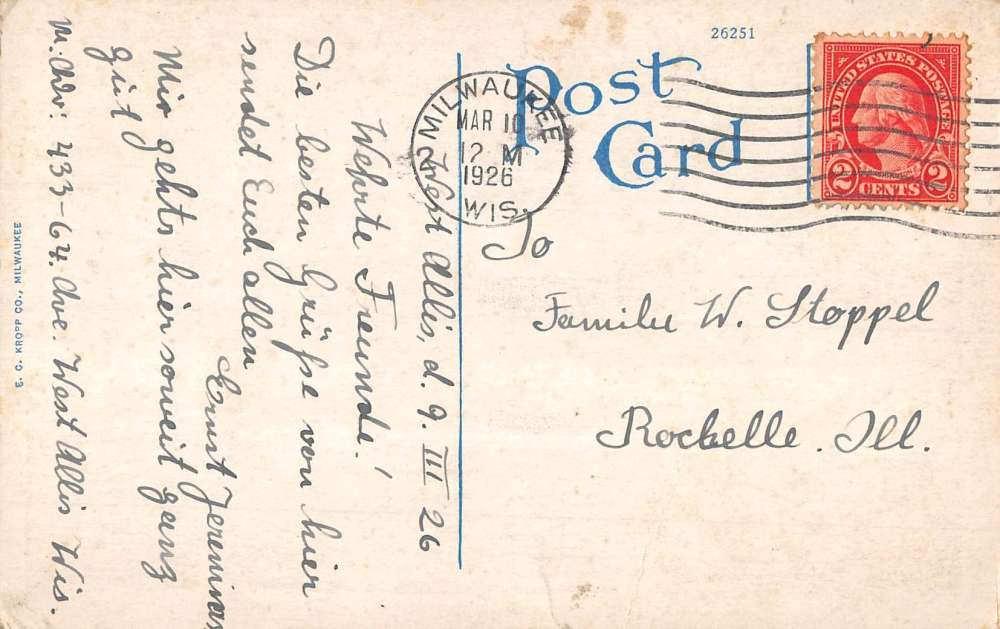 26251
Post
Card
MILWAUKEE
MAR 10
12 M
1926
WIS.
2
UNITED STATES POSTAGE
2 CENTS 2
To
Familie W. Stoppel
Rochelle. Ill.
West Allis, d. 9. III 26
Wehrte Freunde!
Die besten Grüße von hier
sendet Euch allen
Ernst Jeremias
Mir gehts hier soweit ganz
gut
M. Adr: 433-64. Ave. West Allis Wis.
E. C. KROPP CO., MILWAUKEE